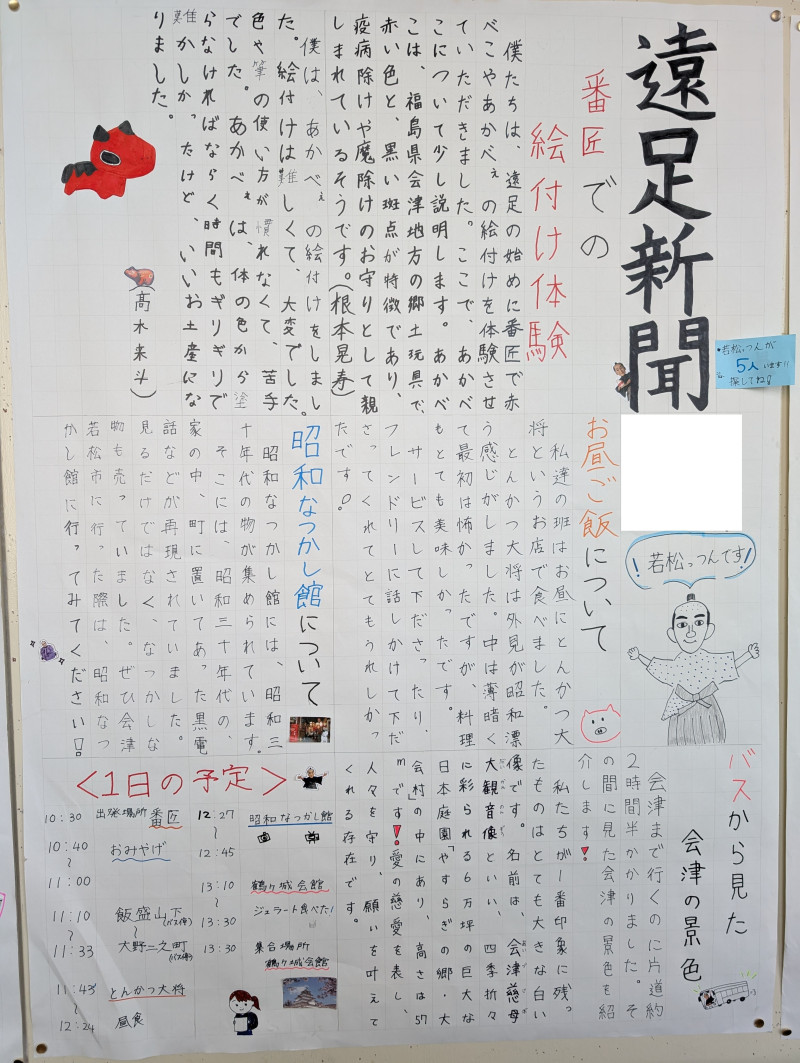 遠足新聞
・若松っつんが
5人います!!
探してね!
番匠での
絵付け体験
僕たちは、遠足の始めに番匠で赤
べこやあかべぇの絵付けを体験させ
ていただきました。ここで、あかべ
こについて少し説明します。あかべ
こは、福島県会津地方の郷土玩具で、
赤い色と、黒い斑点が特徴であり、
疫病除けや魔除けのお守りとして親
しまれているそうです。(根本晃寿)
僕は、あかべぇの絵付けをしまし
た。絵付けは難しくて、大変でした。
色や筆の使い方が慣れなくて、苦手
でした。あかべぇは、体の色から塗
らなければならく時間もギリギリで
難かしかったけど、いいお土産にな
りました。
(高木来斗)
若松っつんです!
お昼ご飯について
私達の班はお昼にとんかつ大
将というお店で食べました。
とんかつ大将は外見が昭和漂
う感じがしました。中は薄暗く
て最初は怖かったですが、料理
もとても美味しかったです。
サービスして下ださったり、
フレンドリーに話しかけて下だ
さってくれてとてもうれしかっ
たです!。
昭和なつかし館について
昭和なつかし館には、昭和三
十年代の物が集められています。
そこには、昭和三十年代の、
家の中、町に置いてあった黒電
話などが再現されていました。
見るだけではなく、なつかしな
物も売っていました。ぜひ会津
若松市に行った際は、昭和なつ
かし館に行ってみてください!!
バスから見た
会津の景色
会津まで行くのに片道約
2時間半かかりました。そ
の間に見た会津の景色を紹
介します!
私たちが1番印象に残っ
たものはとても大きな白い
像です。名前は、会津慈母
大観音像といい、四季折々
に彩られる6万坪の巨大な
日本庭園「やすらぎの郷・大
会村」の中にあり、高さは57
mです!愛の慈愛を表し、
人々を守り、願いを叶えて
くれる存在です。
<1日の予定>
10:30 出発場所 番匠
10:40
〜 おみやげ
11:00
11:10 飯盛山下(バス停)
〜 〜
11:33 大野二之町(バス停)
11:43 とんかつ大将
〜
12:24 昼食
12:27 昭和なつかし館
〜
12:45
13:10 鶴ヶ城会館
〜
13:30 ジェラート食べた!
13:30 集合場所
鶴ヶ城会館